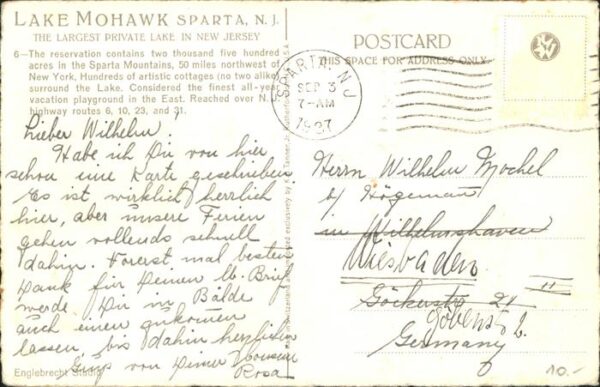 LAKE MOHAWK SPARTA, N. J.
THE LARGEST PRIVATE LAKE IN NEW JERSEY
6—The reservation contains two thousand five hundred
acres in the Sparta Mountains, 50 miles northwest of
New York. Hundreds of artistic cottages (no two alike)
surround the Lake. Considered the finest all-year
vacation playground in the East. Reached over N. J.
highway routes 6, 10, 23, and 31.
Lieber Wilhelm.
Habe ich Dir von hier
schon eine Karte geschrieben
Es ist wirklich herrlich
hier, aber unsere Ferien
gehen vollends schnell
dahin. Forerst mal besten
Dank für Deinen lb. Brief
werde Dir in Bälde
auch einen zukommen
lassen, bis dahin herzlichen
Gruss von Deiner Cousine
Rosa
Englebrecht Studio
POSTCARD
THIS SPACE FOR ADDRESS ONLY
SPARTA, N.J.
SEP 3
7-AM
1937
Herrn Wilhelm Mochel
b/ Högemann
in Wilhelmshaven
Wiesbaden
Göckerstr 21
11
Göbenstr
Germany
10.-